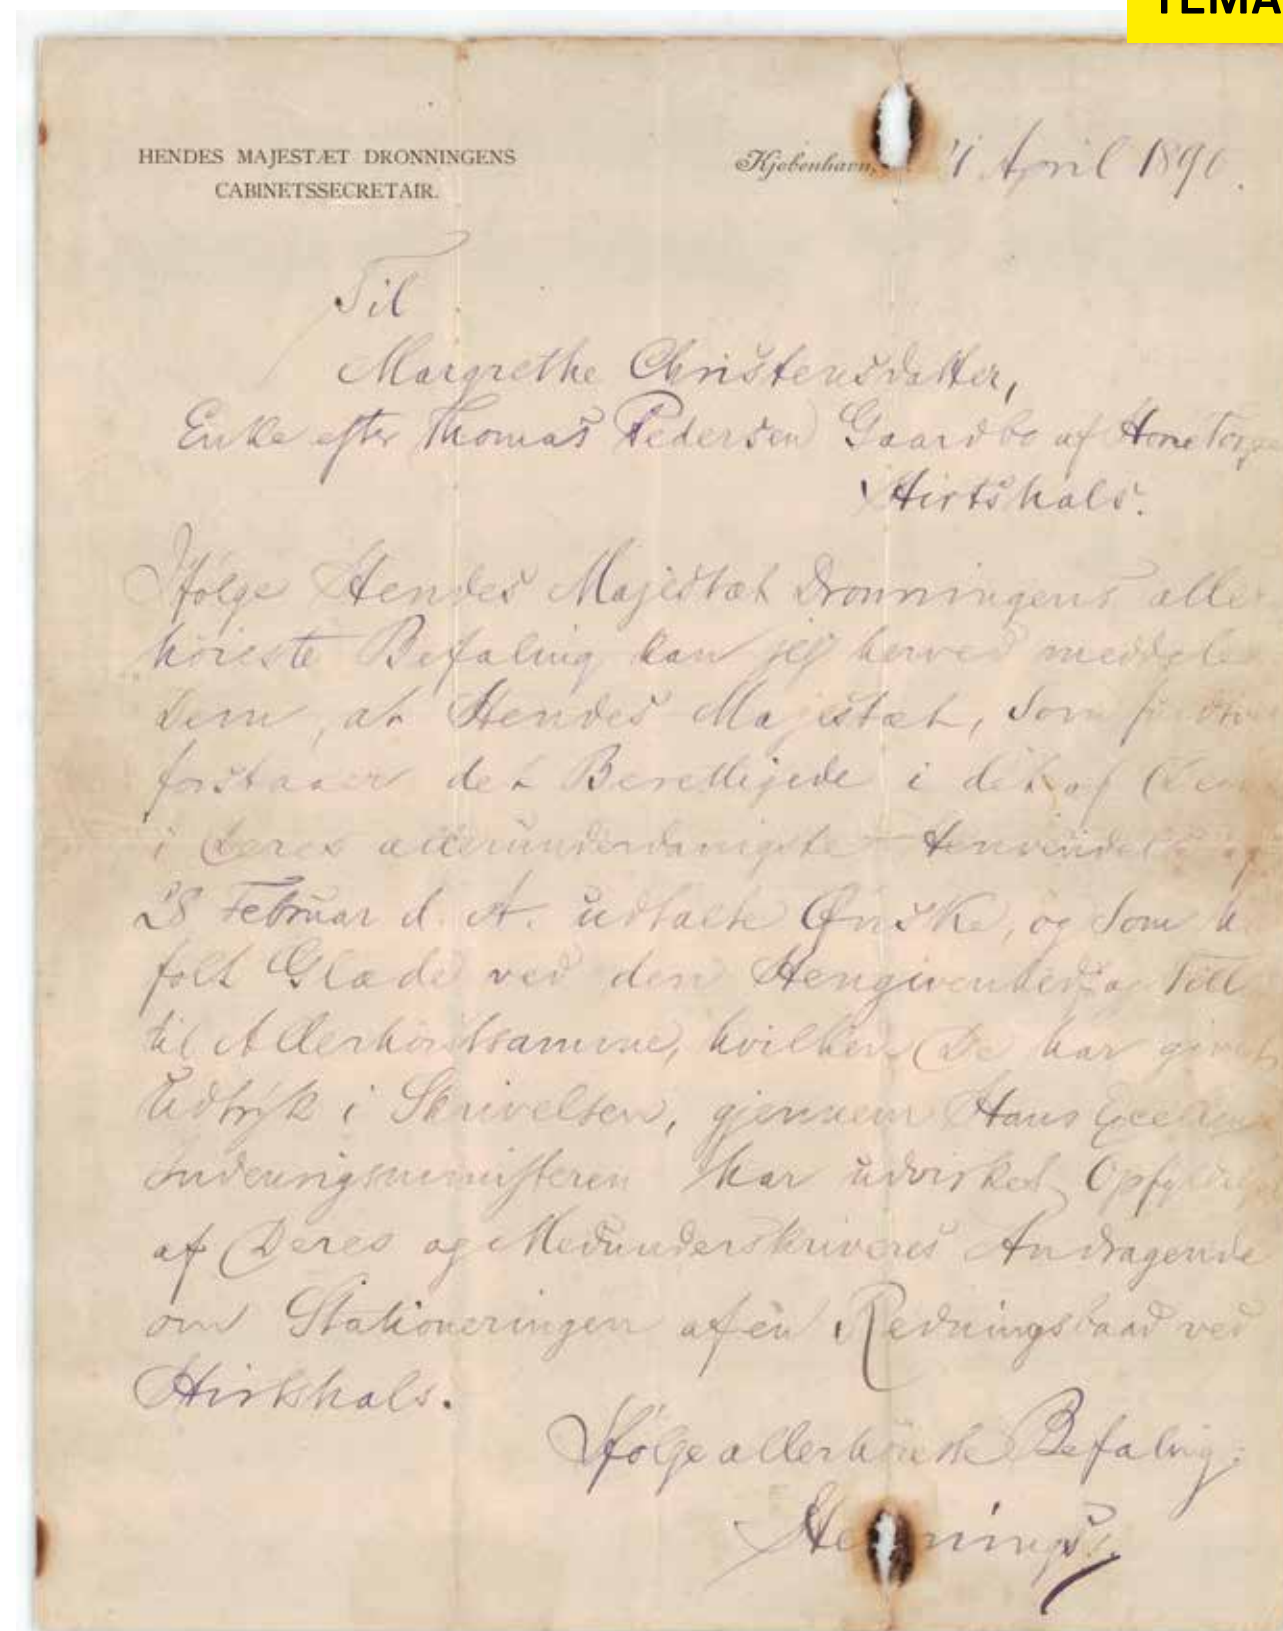 TEMA
HENDES MAJESTÆT DRONNINGENS
CABINETSSECRETAIR.
Kjøbenhavn, April 1890.
Til
Margrethe Christensdatter,
Enke efter Thomas Pedersen Gaardbo af Horne
Hirtshals.
Ifølge Hendes Majestæt Dronningens aller
høieste Befaling kan jeg herved meddele
Dem, at Hendes Majestæt, som
forstaaer det Berettigede i det af
i Deres allerunderdanigste Henvendelse af
28 Februar d. A. udtalte Ønske, og som
følt Glæde ved den Hengivenhed og
til Allerhøistsamme, hvilken De har givet
Udtryk i Skrivelsen, gjennem Hans
Indenrigsministeren har udvirket
af Deres og Medunderskriveres Andragende
om Stationeringen af en Redningsbaad ved
Hirtshals.
Ifølge allerhøieste Befaling.